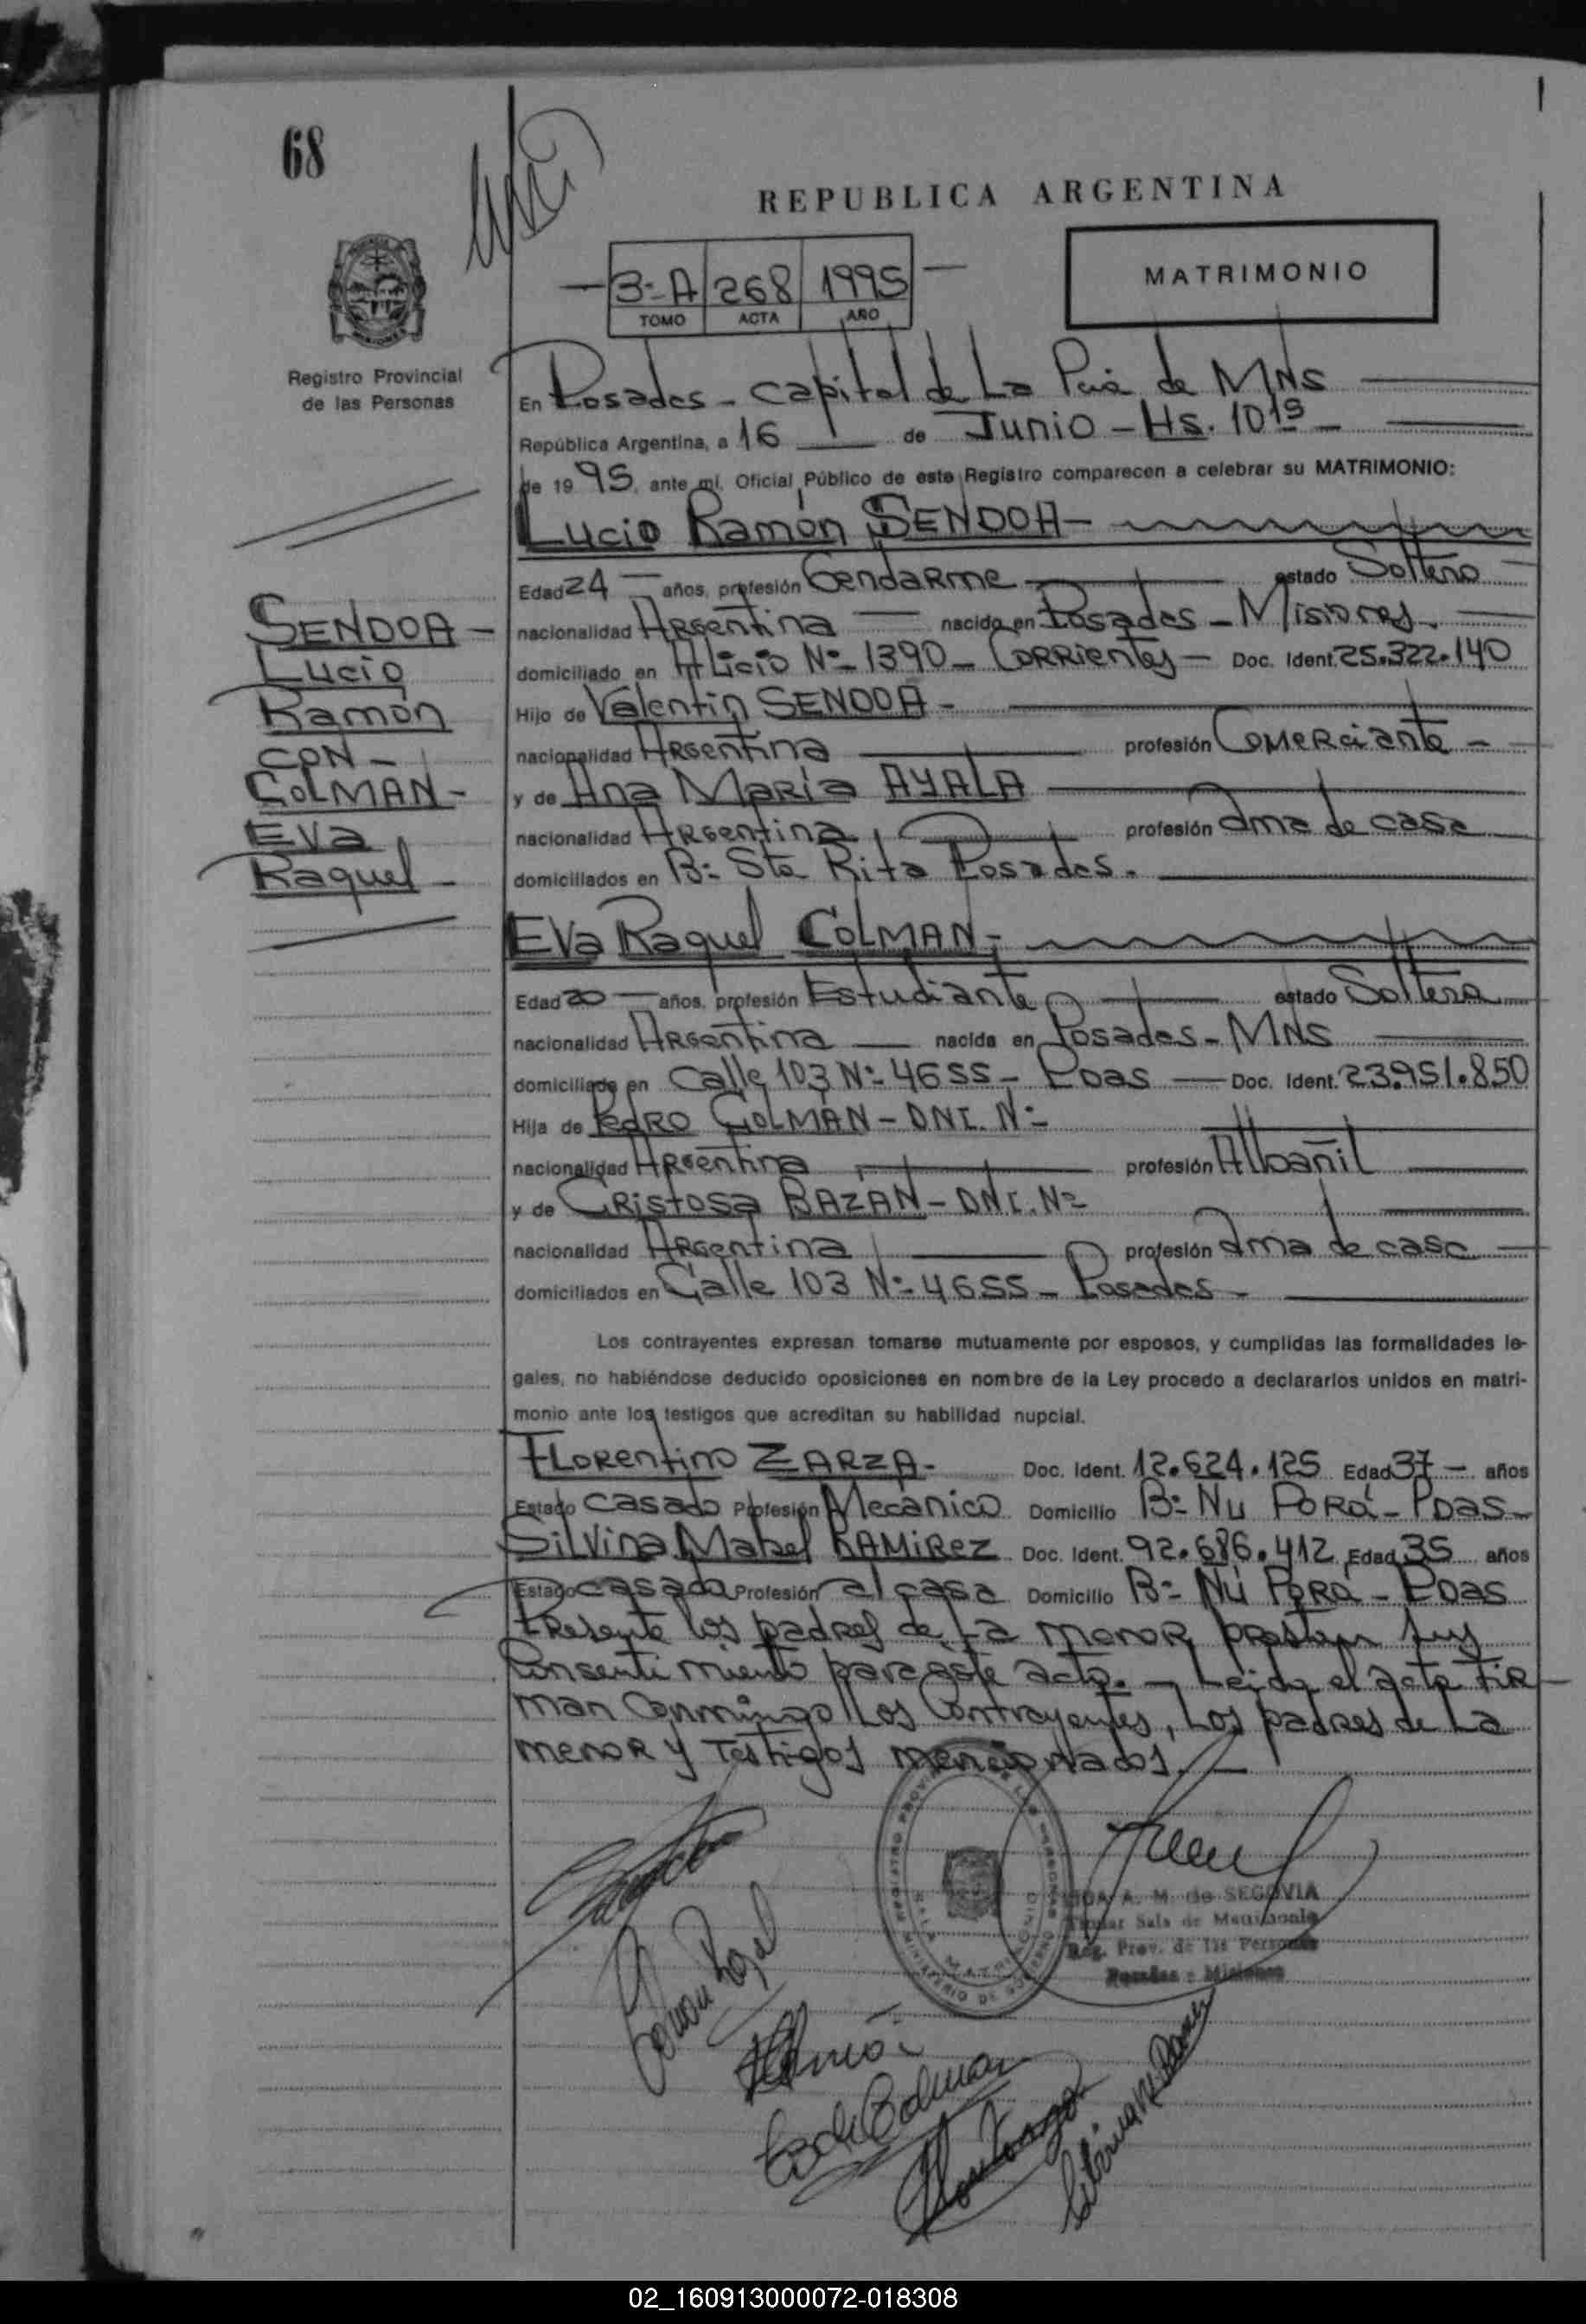 68
REPUBLICA ARGENTINA
3=A 268 1995
TOMO ACTA AÑO
MATRIMONIO
Registro Provincial
de las Personas
En Posadas - Capital de La Pcia de MNS
República Argentina, a 16 de Junio - Hs. 10 15
de 19 95, ante mí, Oficial Público de este Registro comparecen a celebrar su MATRIMONIO:
Lucio Ramón SENDOA-
Edad 24 años, profesión Gendarme estado Soltero
nacionalidad Argentina nacido en Posadas - Misiones
domiciliado en Alicio Nº 1390 - Corrientes - Doc. Ident. 25.322.140
Hijo de Valentin SENDOA -
nacionalidad Argentina profesión Comerciante -
y de Ana Maria AYALA
nacionalidad Argentina profesión Ama de casa
domiciliados en Bº Sta Rita Posadas.
SENDOA -
Lucio
Ramón
CON -
COLMAN -
Eva
Raquel -
Eva Raquel COLMAN -
Edad 20 años, profesión Estudiante estado Soltera
nacionalidad Argentina nacida en Posadas - MNS
domiciliada en Calle 103 Nº 4655 - Pdas Doc. Ident. 23.951.850
Hija de Pedro COLMAN - DNI. Nº
nacionalidad Argentina profesión Albañil
y de Cristosa BAZÁN - DNI. Nº
nacionalidad Argentina profesión Ama de casa
domiciliados en Calle 103 Nº 4655 - Posadas -
Los contrayentes expresan tomarse mutuamente por esposos, y cumplidas las formalidades le-
gales, no habiéndose deducido oposiciones en nombre de la Ley procedo a declararlos unidos en matri-
monio ante los testigos que acreditan su habilidad nupcial.
Florentino ZARZA - Doc. Ident. 12.624.125 Edad 37 - años
Estado Casado Profesión Mecanico Domicilio Bº Ñu Porá - Pdas -
Silvina Mabel RAMIREZ Doc. Ident. 92.686.412 Edad 35 años
Estado casada Profesión a/casa Domicilio Bº Ñu Porá - Pdas
Presente los padres de La menor prestan sus
Consentimiento para este acto. - Leida el acta fir-
man Conmingo Los Contrayentes, Los padres de La
menor y Testigos mencionados. -
A. M. de SEGOVIA
Titular Sala de Matrimonio
Reg. Prov. de las Personas
Posadas - Misiones
02_160913000072-018308